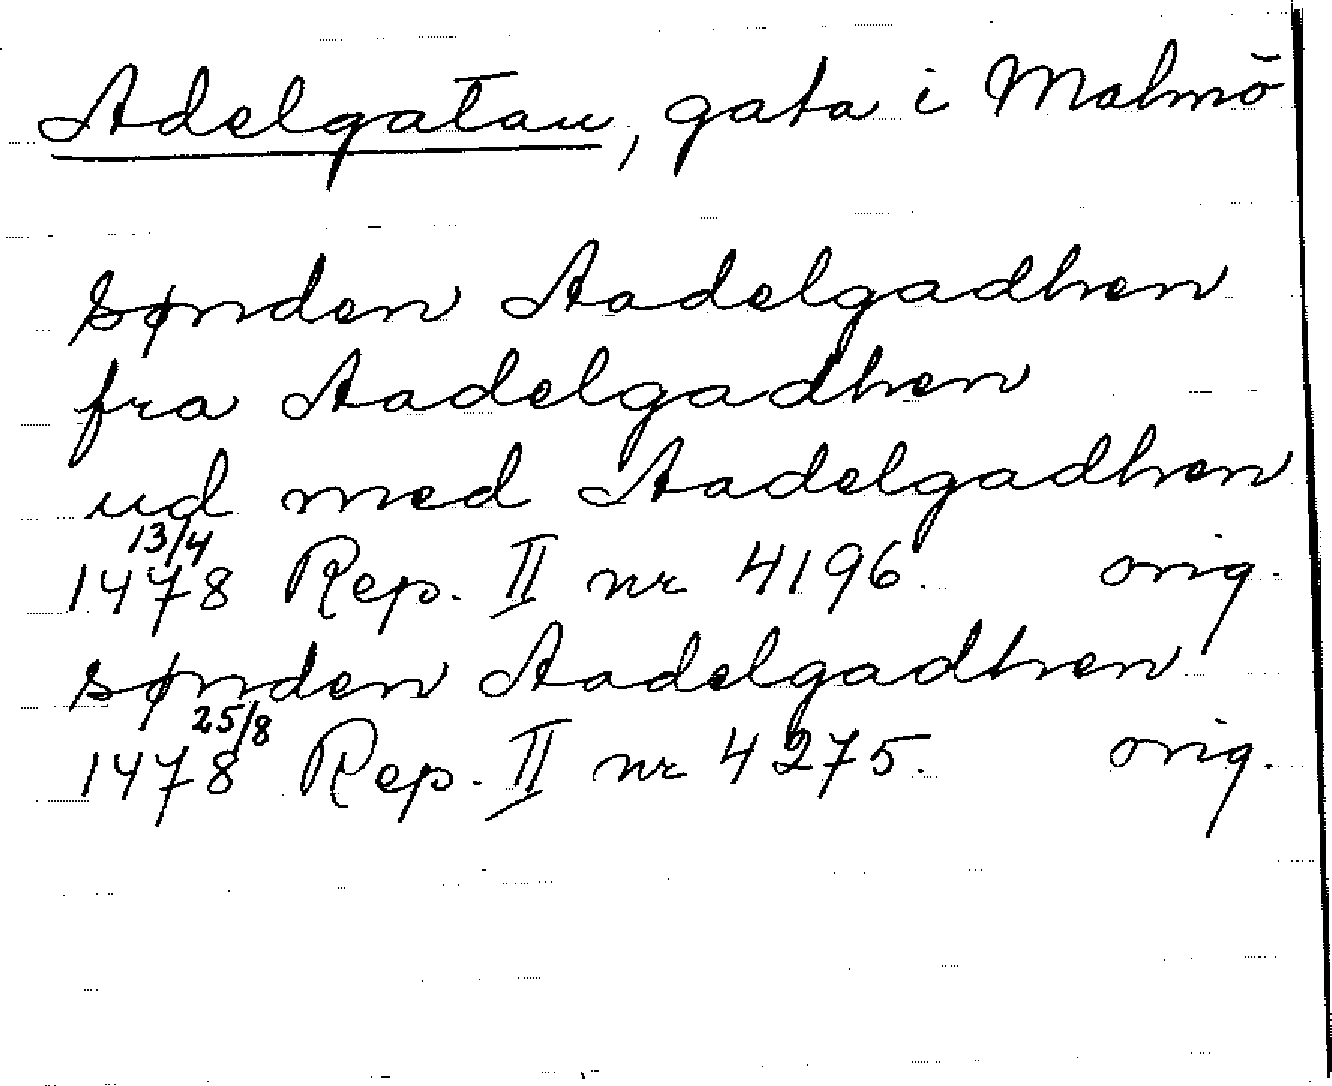 Adelgatan, gata i Malmö
sønden Aadelgadhen
fra Aadelgadhen
ud med Aadelgadhen
13/4
1478 Rep. II nr 4196. orig.
sønden Aadelgadhen
25/8
1478 Rep. II nr 4275. orig.